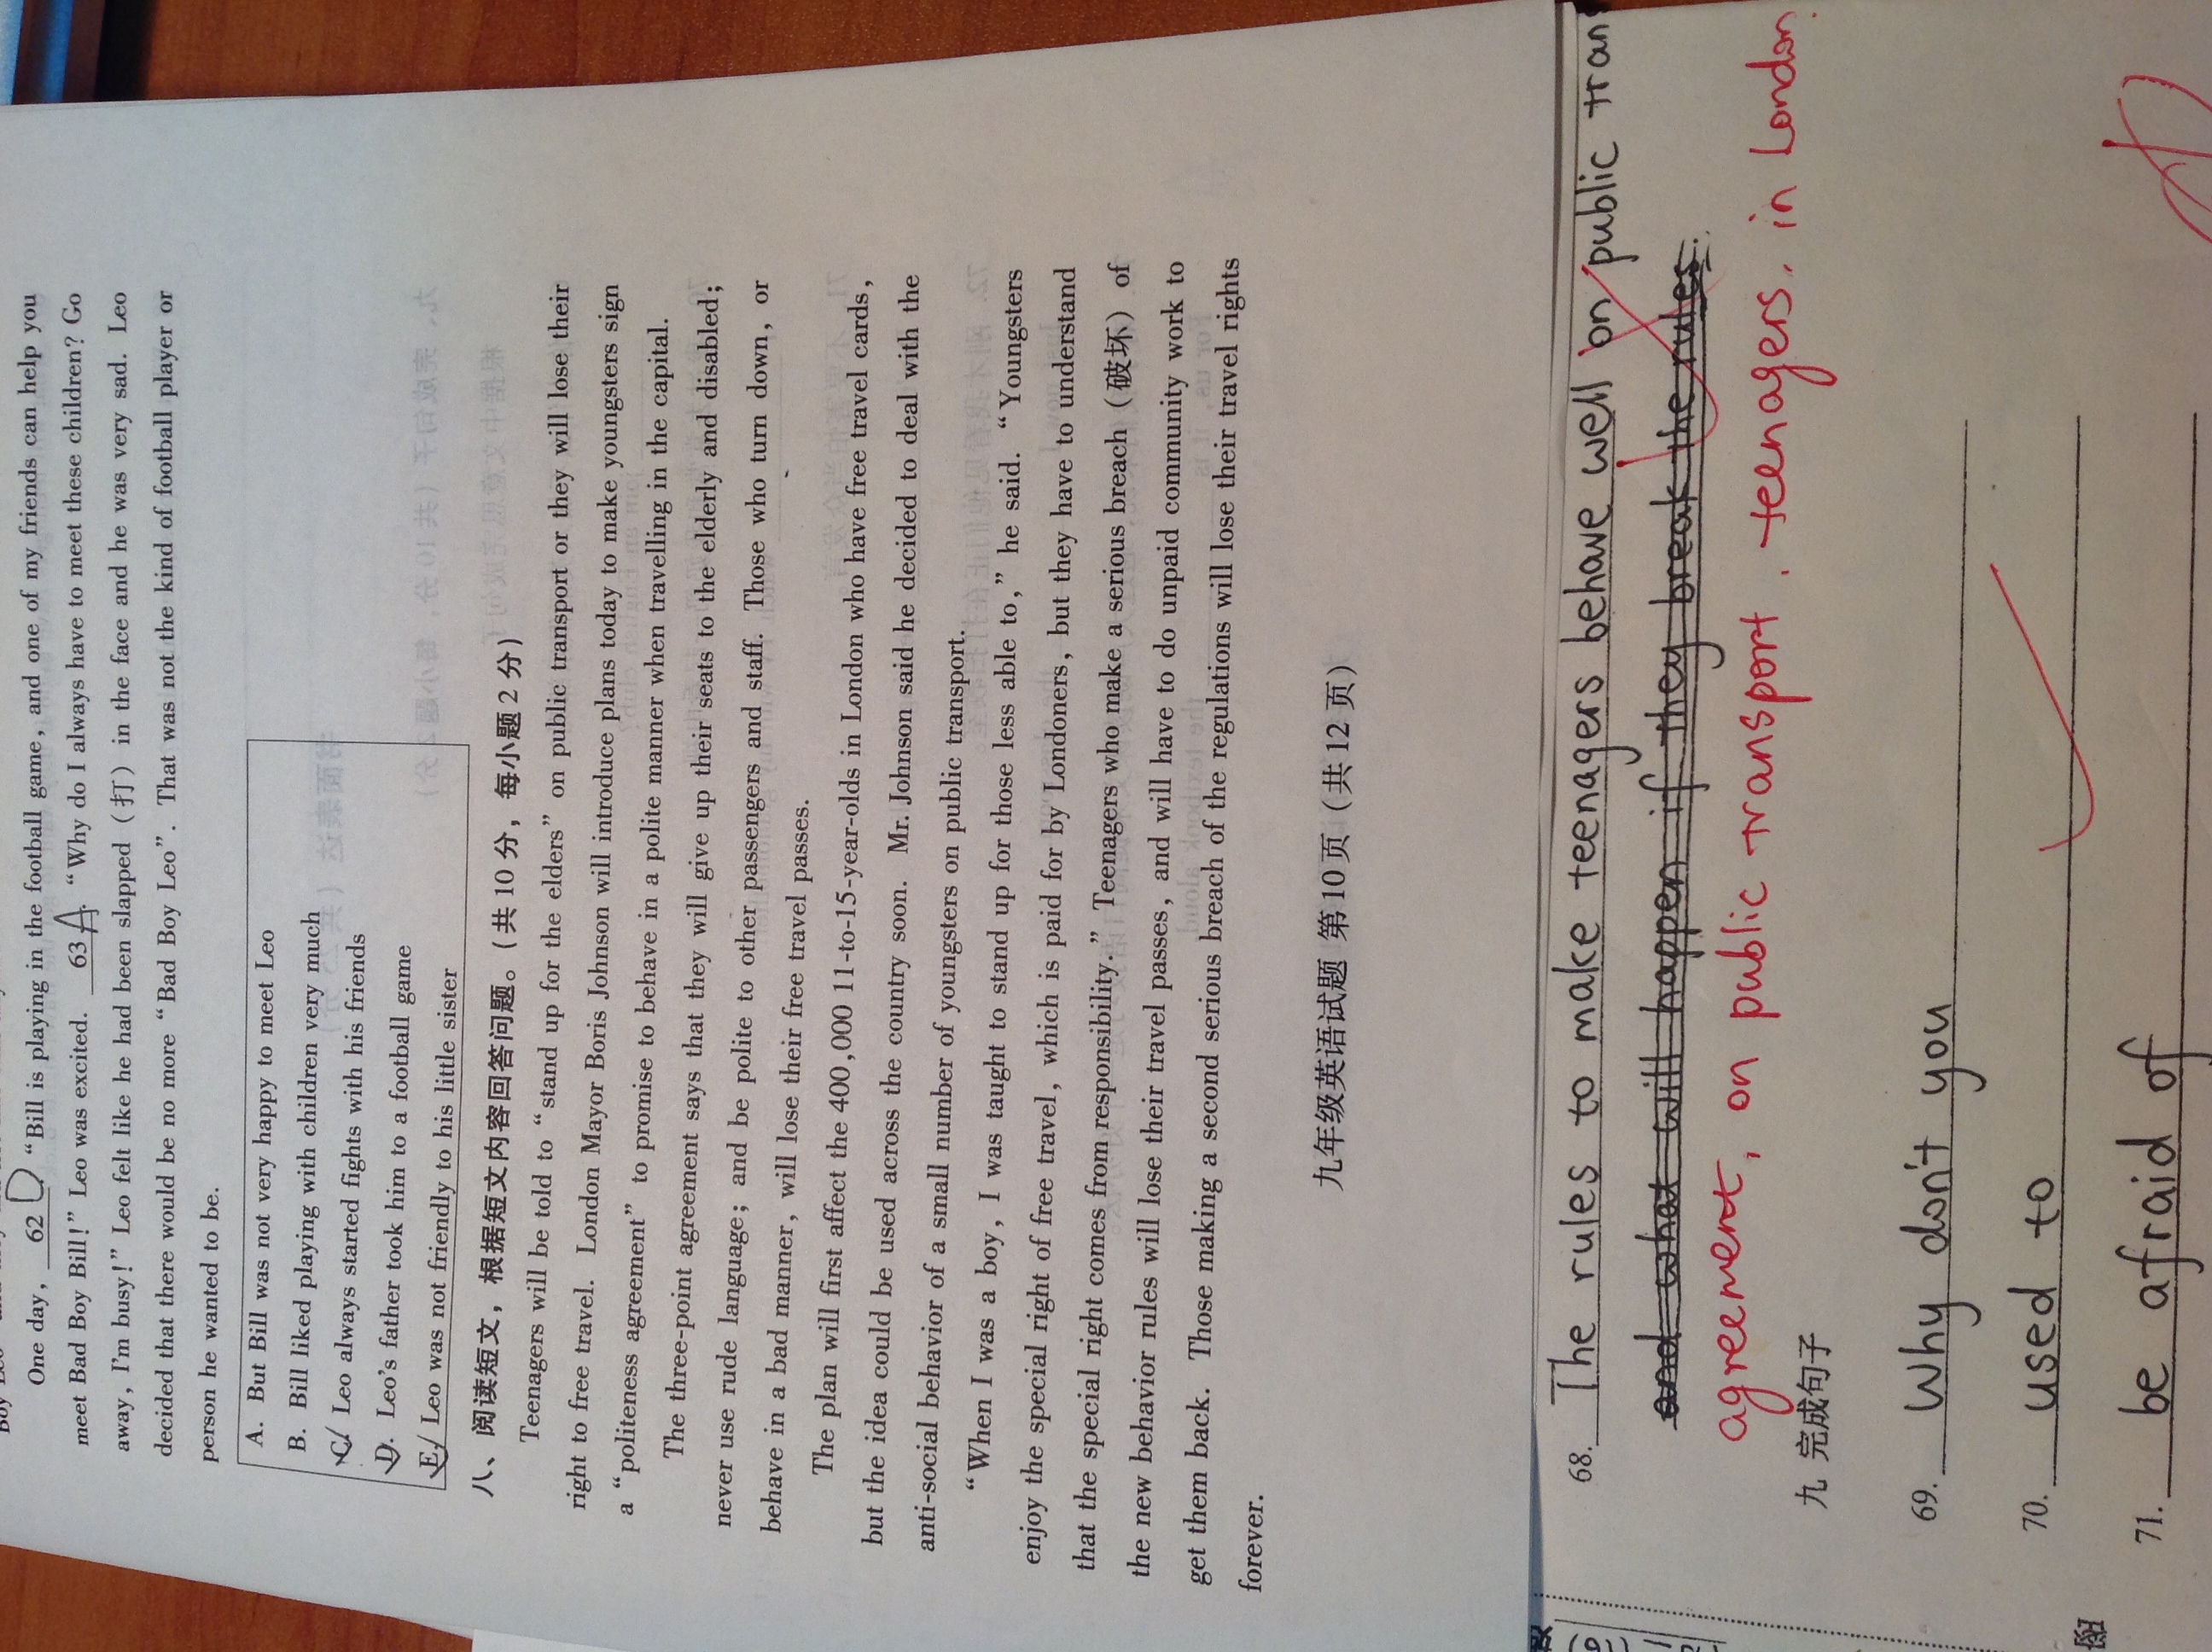 One day, 62 D. "Bill is playing in the football game, and one of my friends can help you
meet Bad Boy Bill!" Leo was excited. 63 A. "Why do I always have to meet these children? Go
away, I'm busy!" Leo felt like he had been slapped (打) in the face and he was very sad. Leo
decided that there would be no more "Bad Boy Leo". That was not the kind of football player or
person he wanted to be.
A. But Bill was not very happy to meet Leo
B. Bill liked playing with children very much
C. Leo always started fights with his friends
D. Leo's father took him to a football game
E. Leo was not friendly to his little sister
八、阅读短文，根据短文内容回答问题。(共 10 分，每小题 2 分)
Teenagers will be told to "stand up for the elders" on public transport or they will lose their
right to free travel. London Mayor Boris Johnson will introduce plans today to make youngsters sign
a "politeness agreement" to promise to behave in a polite manner when travelling in the capital.
The three-point agreement says that they will give up their seats to the elderly and disabled;
never use rude language; and be polite to other passengers and staff. Those who turn down, or
behave in a bad manner, will lose their free travel passes.
The plan will first affect the 400,000 11-to-15-year-olds in London who have free travel cards,
but the idea could be used across the country soon. Mr. Johnson said he decided to deal with the
anti-social behavior of a small number of youngsters on public transport.
"When I was a boy, I was taught to stand up for those less able to," he said. "Youngsters
enjoy the special right of free travel, which is paid for by Londoners, but they have to understand
that the special right comes from responsibility." Teenagers who make a serious breach (破坏) of
the new behavior rules will lose their travel passes, and will have to do unpaid community work to
get them back. Those making a second serious breach of the regulations will lose their travel rights
forever.
九年级英语试题 第 10 页 (共 12 页)
68. The rules to make teenagers behave well on public trans
and what will happen if they break the rules.
agreement, on public transport, teenagers, in London.
九 完成句子
69. Why don't you
70. used to
71. be afraid of